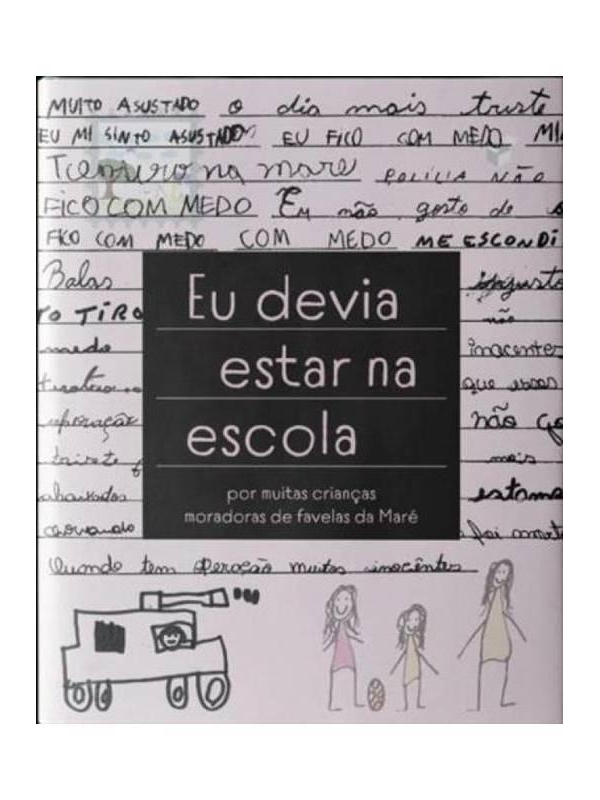 MUITO ASUSTADO o dia mais triste
EU MI SINTO ASUSTADO EU FICO COM MEDO MI
na mare POLICIA NÃO
FICO COM MEDO Eu não gosto de
FICO COM MEDO COM MEDO ME ESCONDI
Balas injusto
TO TIRO não
medo inocentes
que essas
não go
mais
abaixados estama
foi morto
Quando tem operoção muitos inocêntes
Eu devia
estar na
escola
por muitas crianças
moradoras de favelas da Maré